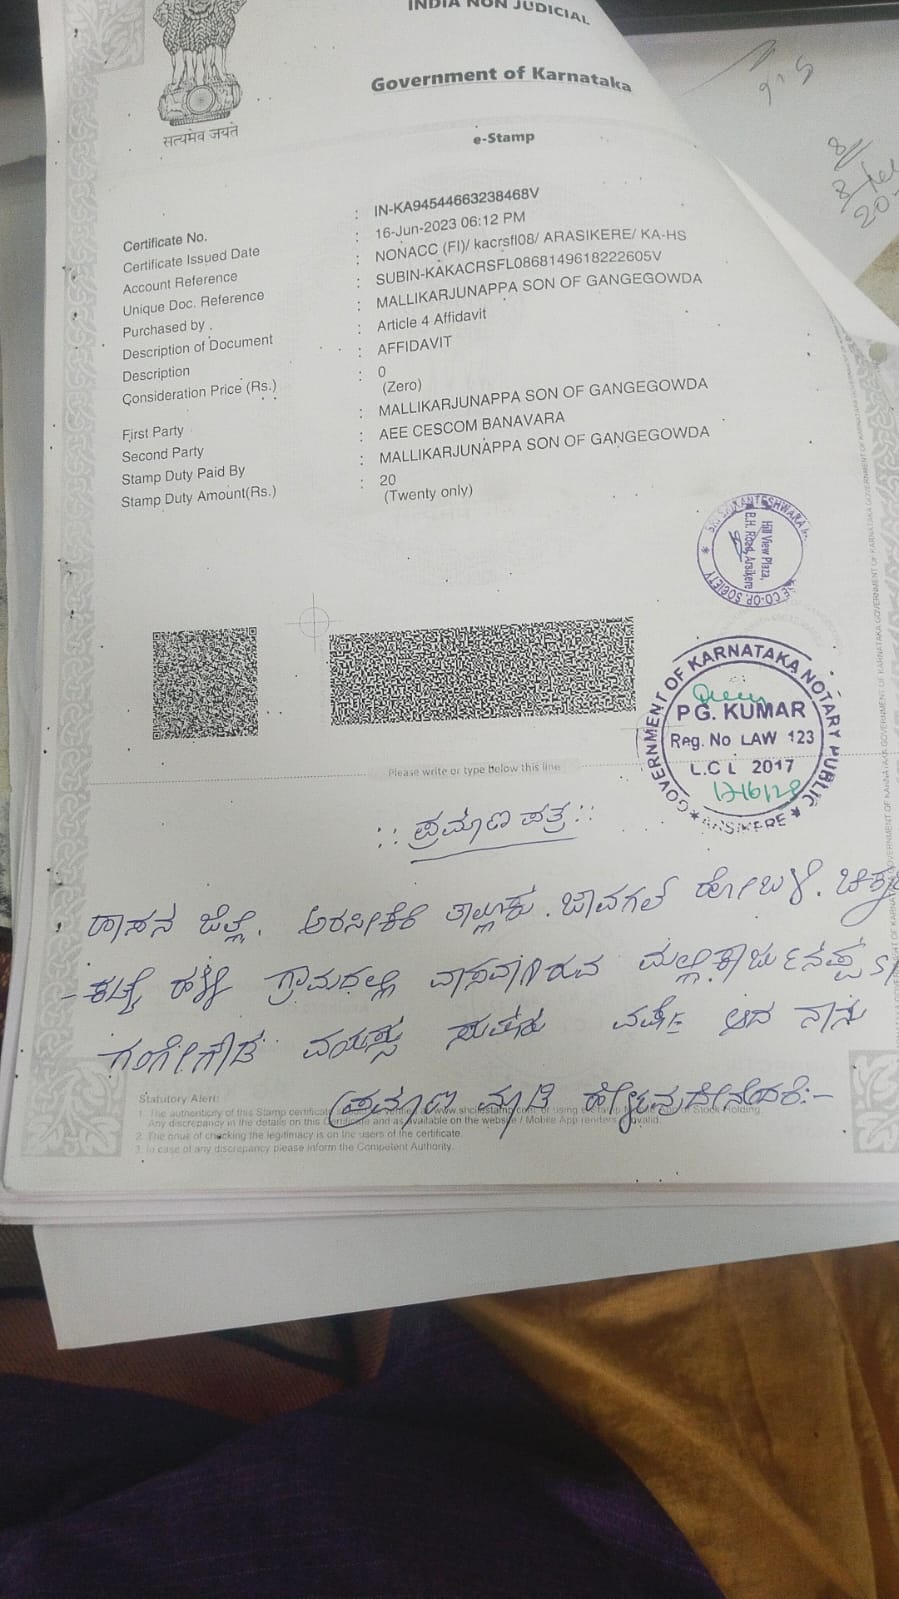 INDIA NON JUDICIAL
Government of Karnataka
सत्यमेव जयते
e-Stamp
Certificate No. : IN-KA94544663238468V
Certificate Issued Date : 16-Jun-2023 06:12 PM
Account Reference : NONACC (FI)/ kacrsfl08/ ARASIKERE/ KA-HS
Unique Doc. Reference : SUBIN-KAKACRSFL0868149618222605V
Purchased by : MALLIKARJUNAPPA SON OF GANGEGOWDA
Description of Document : Article 4 Affidavit
Description : AFFIDAVIT
Consideration Price (Rs.) : 0
(Zero)
First Party : MALLIKARJUNAPPA SON OF GANGEGOWDA
Second Party : AEE CESCOM BANAVARA
Stamp Duty Paid By : MALLIKARJUNAPPA SON OF GANGEGOWDA
Stamp Duty Amount(Rs.) : 20
(Twenty only)
Hill View Plaza,
B.H. Road, Arsikere
CO-OP. SOCIETY
GOVERNMENT OF KARNATAKA NOTARY PUBLIC
PG. KUMAR
Reg. No LAW 123
L.C L 2017
ARSIKERE
Please write or type below this line
:: ಪ್ರಮಾಣ ಪತ್ರ ::
ಹಾಸನ ಜಿಲ್ಲೆ, ಅರಸೀಕೆರೆ ತಾಲ್ಲೂಕು, ಜಾವಗಲ್ ಹೋಬಳಿ,
ಹಳ್ಳಿ ಗ್ರಾಮದಲ್ಲಿ ವಾಸವಾಗಿರುವ ಮಲ್ಲಿಕಾರ್ಜುನಪ್ಪ
ಗಂಗೇಗೌಡ ವಯಸ್ಸು ಸುಮಾರು ವರ್ಷ ಆದ ನಾನು
ಪ್ರಮಾಣ ಮಾಡಿ ಹೇಳುವುದೇನೆಂದರೆ:-
Statutory Alert:
1. The authenticity of this Stamp certificate www.shcilestamp.com or using e-Stamp Stock Holding.
Any discrepancy in the details on this Certificate and as available on the website / Mobile App renders it invalid.
2. The onus of checking the legitimacy is on the users of the certificate.
3. In case of any discrepancy please inform the Competent Authority.